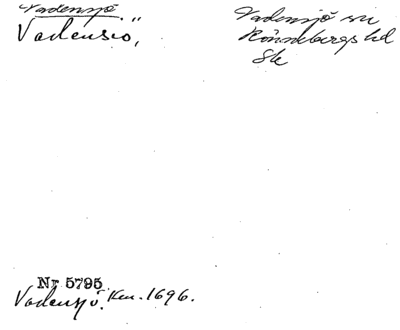 Vadensjö
Vadensiö,"
Vadensjö sn
Rönnebergs hd
Sk
Nr 5795.
Vadensjö. Km. 1696.